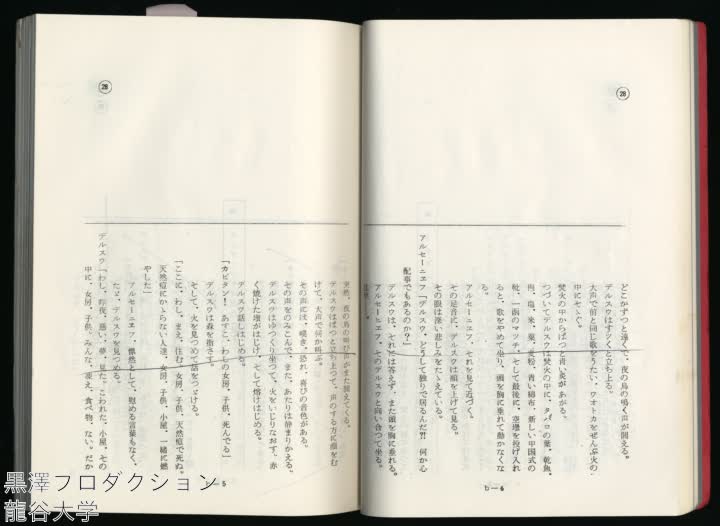 28
どこかずっと遠くで、夜の鳥の鳴く声が聞える。
デルスウはすツくと立ち上る。
大声で前と同じ歌をうたい、ウオトカをぜんぶ火の
中にそゝぐ。
焚火の中からぱっと青い炎があがる。
つづいてデルスウは焚火の中に、タバコの葉、乾魚、
肉、塩、米、粟、麦粉、青い綿布、新しい中国式の
靴、一函のマツチ、そして最後に、空壜を投げ入れ
ると、歌をやめて坐り、頭を胸に垂れて動かなくな
る。
アルセーニエフ、それを見て近づく。
その足音に、デルスウは頭を上げて見る。
その眼は深い悲しみをたたえている。
アルセーニエフ「デルスウ、どうして独りで居るんだ⁈ 何か心
配事でもあるのか？」
デルスウは、それには答えず、また頭を胸に垂れる。
アルセーニエフ、そのデルスウと向い合つて坐る。
b—6
28
突然、夜の鳥の叫び声がまた聞えてくる。
デルスウはぱつと立ち上つて、声のする方に顔をむ
けて、大声で何か叫ぶ。
その声には、嘆き、恐れ、喜びの音色がある。
その声をのみこんで、また、あたりは静まりかえる。
デルスウはゆつくり坐つて、火をいじりなおす、赤
く焼けた壜がはじけ、そして熔けはじめる。
デルスウ話しはじめる。
「カピタン！ あすこ、わしの女房、子供、死んでる」
デルスウは森を指さす。
そして、火を見つめて話をつづける。
「ここに、わし、まえ、住む、女房、子供、天然痘で死ぬ。
天然痘にかゝらない人達、女房、子供、小屋、一緒に燃
やした」
アルセーニエフ、慄然として、慰める言葉もなく、
たゞ、デルスウを見つめる。
デルスウ「わし、昨夜、悪い、夢、見た。こわれた、小屋、その
中に、女房、子供、みんな、凍え、食べ物、ない。だか
b—5
黒澤プロダクション
龍谷大学